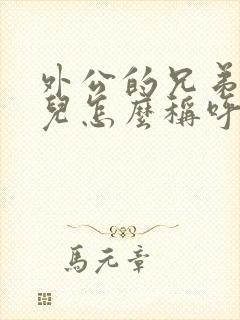 外公的兄弟
兒怎麼稱呼
馬元章